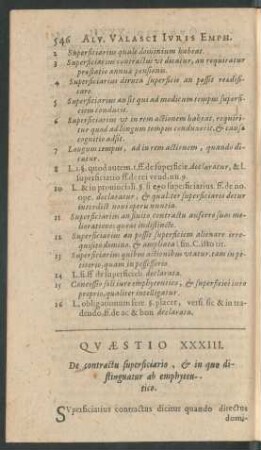 546 ALV. VALASCI IVRIS EMPH.
2 Superficiarius quale dominium habeat.
3 Superficiarius contractus vt dicatur, an requiratur
præstatio annua pensionis.
4 Superficiarius diruta superficie an possit reædifi-
care.
5 Superficiarius an sit qui ad modicum tempus superfi-
ciem conducit.
6 Superficiarius vt in rem actionem habeat, requiri-
tur quod ad longum tempus conduxerit, & causa
cognitio adsit.
7 Longum tempus, ad in rem actionem, quando di-
catur.
8 L. 1. §. quod autem. ff. de superficie. declaratur, & l.
superficiario ff. de rei vend. nu. 9.
10 L. & in prouinciali. §. si ego superficiarius. ff. de no.
ope. declaratur, & qualiter superficiarius detur
interdict. noui operis nuntia.
11 Superficiarius an finito contractu auferre suas me-
liorationes queat indistincte.
12 Superficiarius an possit superficiem alienare irre-
quisito domino, & amplia
13 Superficiarius quibus actionibus vtatur, tam in pe-
titorio, quam in possessorio.
14 L. si. ff. de superficieb. declarata.
15 Concessio soli iure emphyteutico, & superficiei iure
proprio, qualiter intelligatur.
16 L. obligationum fere. §. placet, versi. sic & in tra-
dendo. ff. de ac & bon declarata.
QVÆSTIO XXXIII.
De contractu superficiario, & in quo di-
stinguatur ab emphyteu-
tico.
SVperficiarius contractus dicitur quando directus
domi-